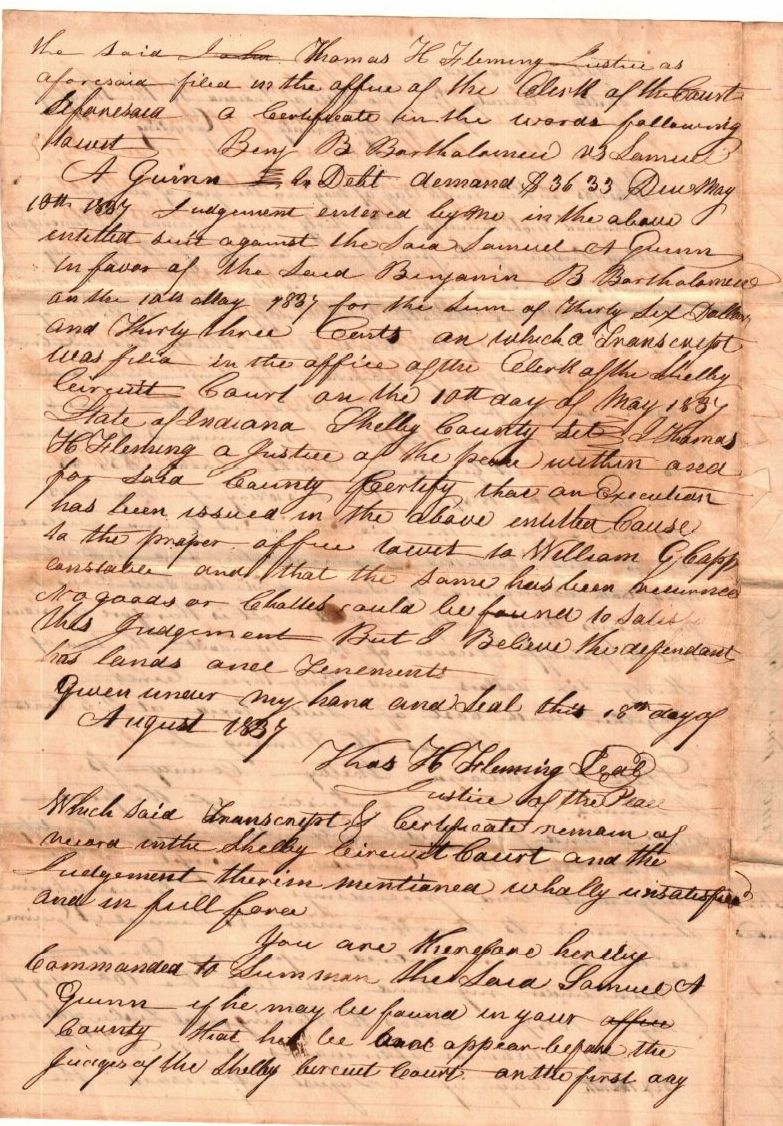 the said John Thomas H Fleming Justice as
aforesaid filed in the office of the Clerk of the Court
aforesaid a Certificate in the words following
towit Benj B Bartholomew vs Samuel
A Quinn In Debt demand $36 33 Due May
10th 1837 Judgement entered by me in the above
entitled suit against the said Samuel A Quinn
in favor of the said Benjamin B Bartholomew
on the 10th May 1837 for the sum of Thirty Six Dollars
and Thirty three Cents on which a Transcript
was filed in the office of the Clerk of the Shelby
Circuit Court on the 10th day of May 1837
State of Indiana Shelby County Sct I Thomas
H Fleming a Justice of the peace within and
for said County Certify that an Execution
has been issued in the above entitled Cause
to the proper office towit to William G Capp
constable and that the same has been returned
No goods or Chattels could be found to satisfy
this Judgement But I Believe the defendant
has lands and Tenements
Given under my hand and seal this 18th day of
August 1837
Thos H Fleming Seal
Justice of the Peace
Which said Transcript & Certificate remain of
record in the Shelby Circuit Court and the
Judgement therein mentioned wholly unsatisfied
and in full force
You are therefore hereby
Commanded to Summon the said Samuel A
Quinn if he may be found in your office
County that he be and appear before the
Judges of the Shelby Circuit Court on the first day